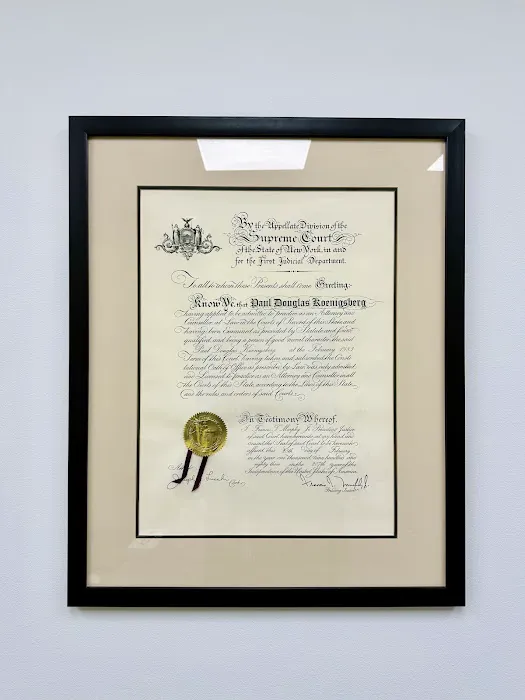 By the Appellate Division of the
Supreme Court
of the State of New York, in and
for the First Judicial Department.
To all to whom these Presents shall come Greeting:
Know Ye, that Paul Douglas Koenigsberg
having applied to be admitted to practice as an Attorney and
Counsellor at Law in the Courts of Record of this State, and
having been examined as provided by Statute and found
qualified, and being a person of good moral character, the said
Paul Douglas Koenigsberg at the February 1983
Term of this Court having taken and subscribed the Consti-
tutional Oath of Office as prescribed by Law, was duly admitted
and Licensed to practice as an Attorney and Counsellor in all
the Courts of this State, according to the Laws of this State
and the rules and orders of said Courts.
In Testimony Whereof,
I Francis T. Murphy Jr. Presiding Justice
of said Court, have hereunto set my hand and
caused the Seal of said Court to be hereunto
affixed this day of February
in the year one thousand nine hundred and
eighty three in the 207th year of the
Independence of the United States of America.
Clerk
Presiding Justice